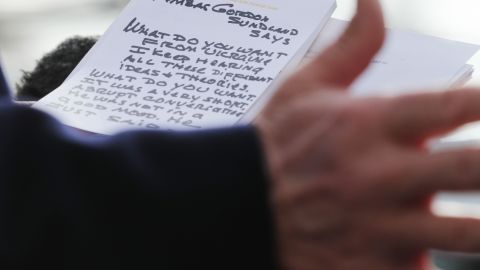 AMBAS GORDON
SUNDLAND
SAYS
WHAT DO YOU WANT
FROM UKRAINE
I KEEP HEARING
ALL THESE DIFFERENT
IDEAS & THEORIES.
WHAT DO YOU WANT.
IT WAS A VERY SHORT,
ABRUPT CONVERSATION
HE WAS NOT IN A
GOOD MOOD. HE
JUST SAID